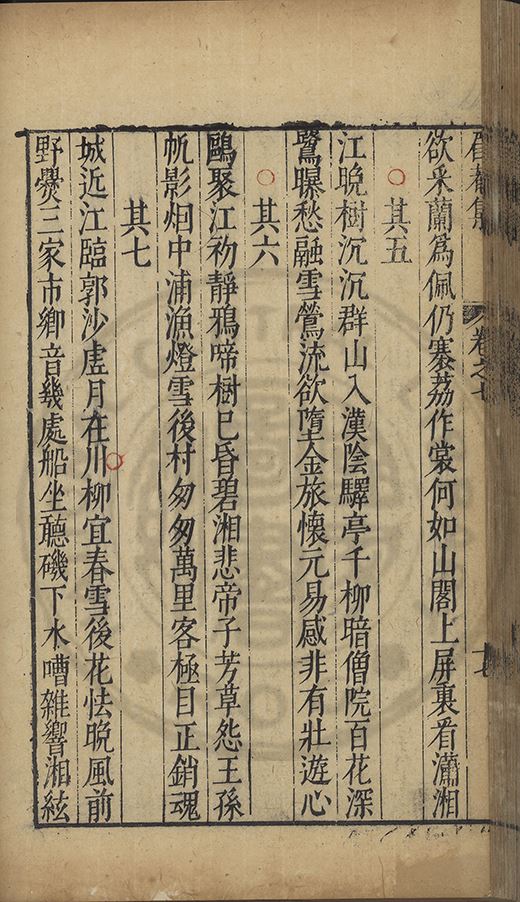 卷之七
十七
欲采蘭為佩仍褰荔作裳何如山閣上屏裏看瀟湘
其五
江晚樹沉沉群山入漢陰驛亭千柳暗僧院百花深
鷺曝愁融雪鶯流欲墮金旅懷元易感非有壯遊心
其六
鷗聚江初靜鴉啼樹已昏碧湘悲帝子芳草怨王孫
帆影烟中浦漁燈雪後村匆匆萬里客極目正銷魂
其七
城近江臨郭沙虗月在川柳宜春雪後花怯晚風前
野爨三家市鄉音幾處船坐聽磯下水嘈雜響湘絃